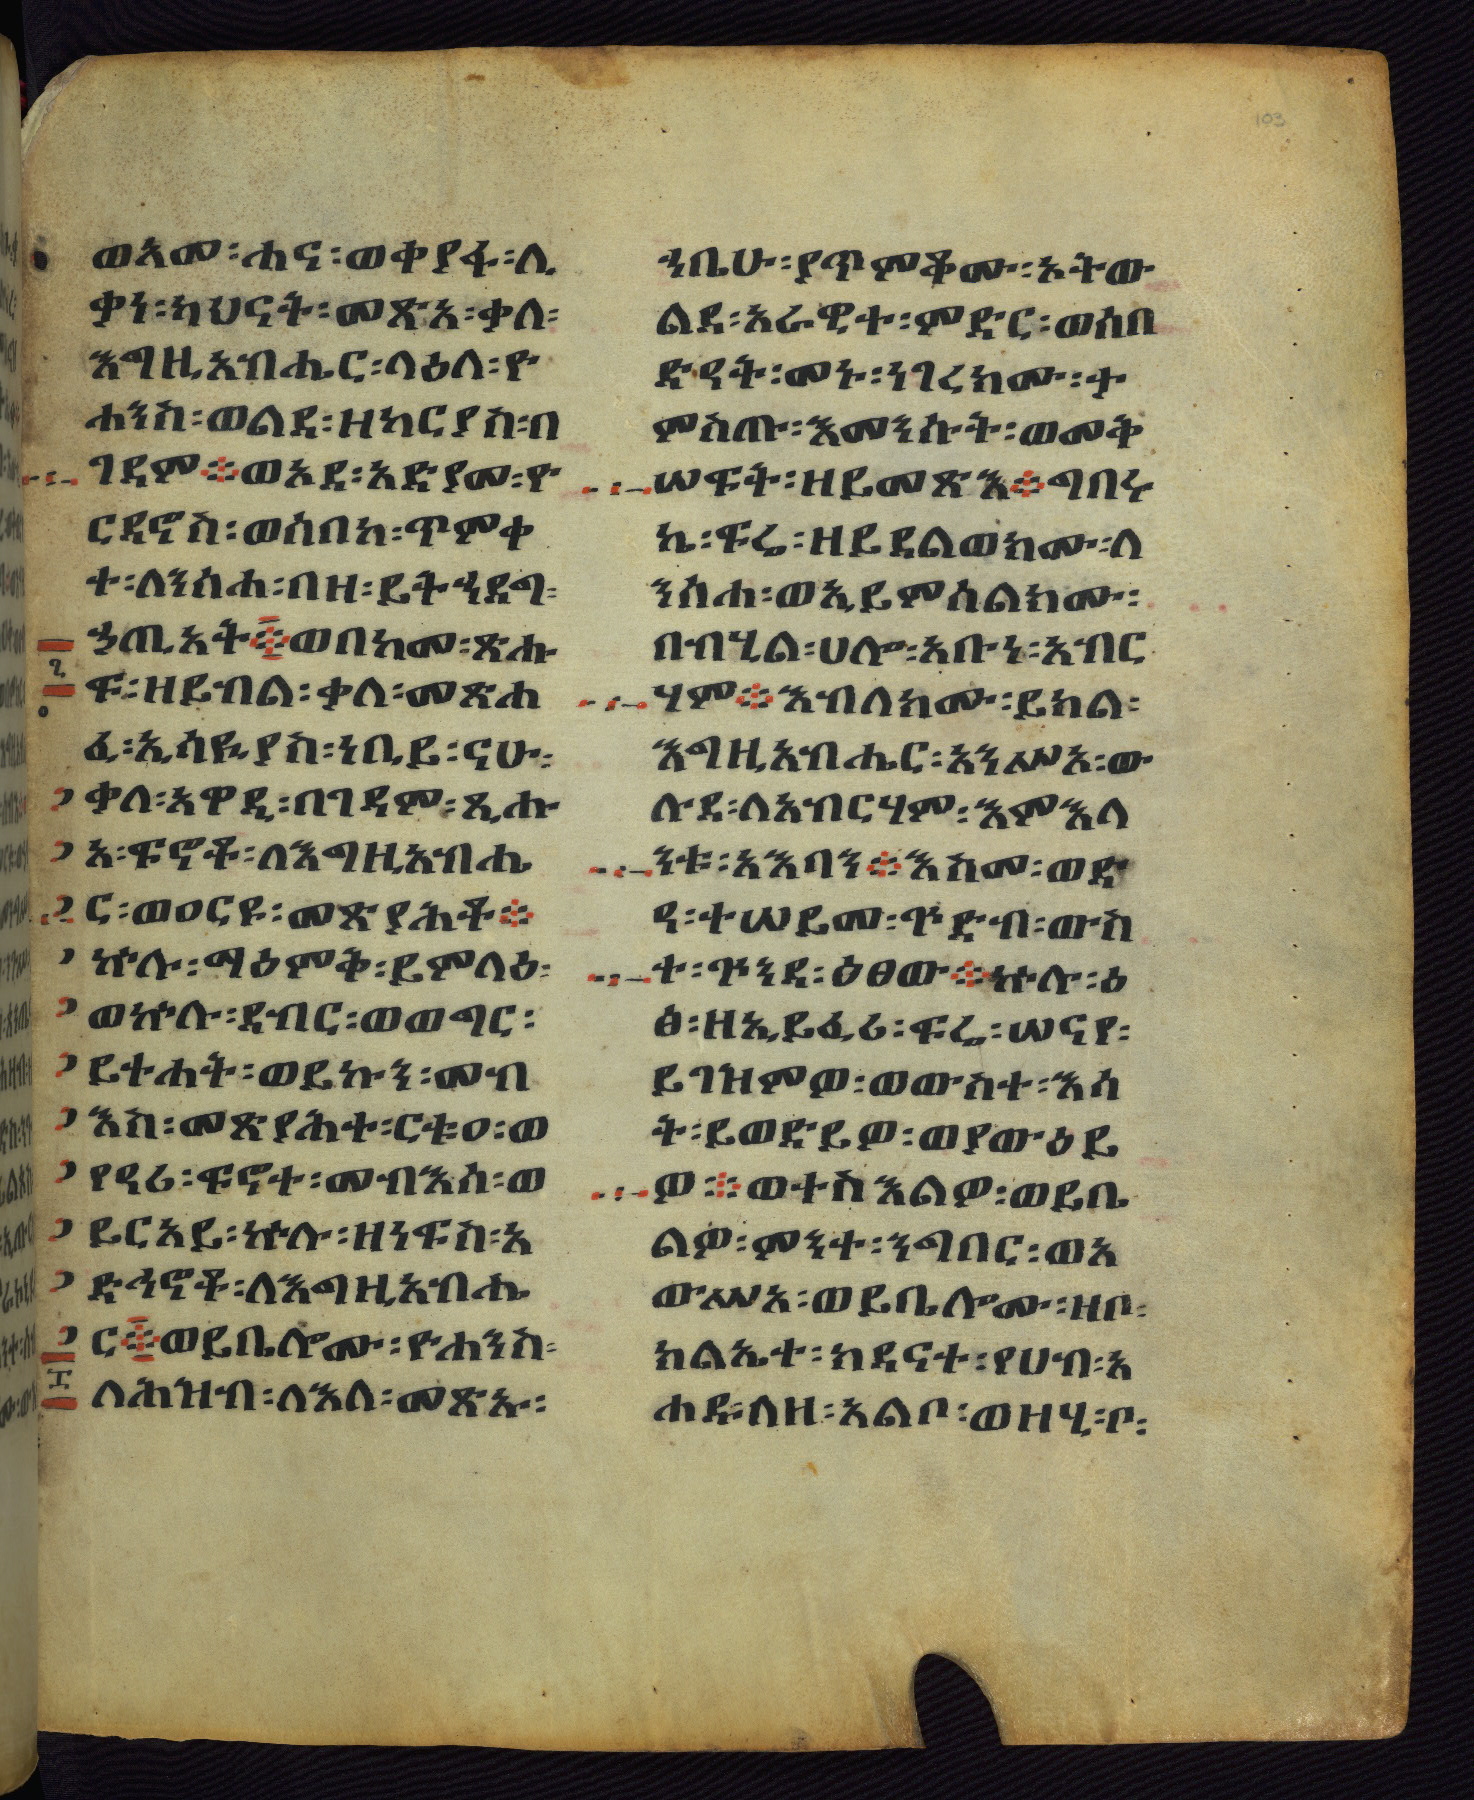 103
ወእመ፡ሐና፡ወቀያፋ፡ሊ
ቃነ፡ካህናት፡መጽአ፡ቃለ፡
እግዚአብሔር፡ላዕለ፡ዮ
ሐንስ፡ወልደ፡ዘካርያስ፡በ
ገዳም፨ወአደ፡አድያመ፡ዮ
ርዳኖስ፡ወሰበከ፡ጥምቀ
ተ፡ለንስሐ፡በዘ፡ይትኀደግ፡
ኃጢአት፨ወበከመ፡ጽሑ
ፍ፡ዘይብል፡ቃለ፡መጽሐ
ፈ፡ኢሳይያስ፡ነቢይ፡ናሁ፡
ቃለ፡አዋዲ፡በገዳም፡ጺሑ
አ፡ፍኖቶ፡ለእግዚአብሔ
ር፡ወዐርዩ፡መጽያሕቶ፨
ኵሉ፡ማዕምቅ፡ይምላዕ፡
ወኵሉ፡ደብር፡ወወግር፡
ይተሐት፡ወይኩን፡መብ
እስ፡መጽያሕተ፡ርቱዐ፡ወ
የዳሪ፡ፍኖተ፡መብእስ፡ወ
ይርአይ፡ኵሉ፡ዘነፍስ፡አ
ድኅኖቶ፡ለእግዚአብሔ
ር፨ወይቤሎሙ፡ዮሐንስ፡
ለሕዝብ፡ለእለ፡መጽኡ፡
ኀቤሁ፡ያጥምቆሙ፡ኦትው
ልደ፡አራዊተ፡ምድር፡ወሰበ
ድዳት፡መኑ፡ነገረክሙ፡ተ
ምስጡ፡እመንሱት፡ወመቅ
ሠፍት፡ዘይመጽእ፨ግበሩ
ኬ፡ፍሬ፡ዘይደልወክሙ፡ለ
ንስሐ፡ወኢይምሰልክሙ፡
በብሂል፡ሀሎ፡አቡነ፡አብር
ሃም፨እብለክሙ፡ይክል፡
እግዚአብሔር፡አንሥአ፡ው
ሉደ፡ለአብርሃም፡እምእላ
ንቱ፡አእባን፨እስመ፡ወድ
ዳ፡ተሠይመ፡ጕድብ፡ውስ
ተ፡ጕንደ፡ዕፀው፨ኵሉ፡ዕ
ፅ፡ዘኢይፈሪ፡ፍሬ፡ሠናየ፡
ይገዝምዎ፡ወውስተ፡እሳ
ት፡ይወድይዎ፡ወያውዕይ
ዎ፨ወተስእልዎ፡ወይቤ
ልዎ፡ምንተ፡ንግበር፡ወአ
ውሥአ፡ወይቤሎሙ፡ዘቦ፡
ክልኤተ፡ክዳናተ፡የሀብ፡አ
ሐዱ፡ለዘ፡አልቦ፡ወዘሂ፡ቦ፡